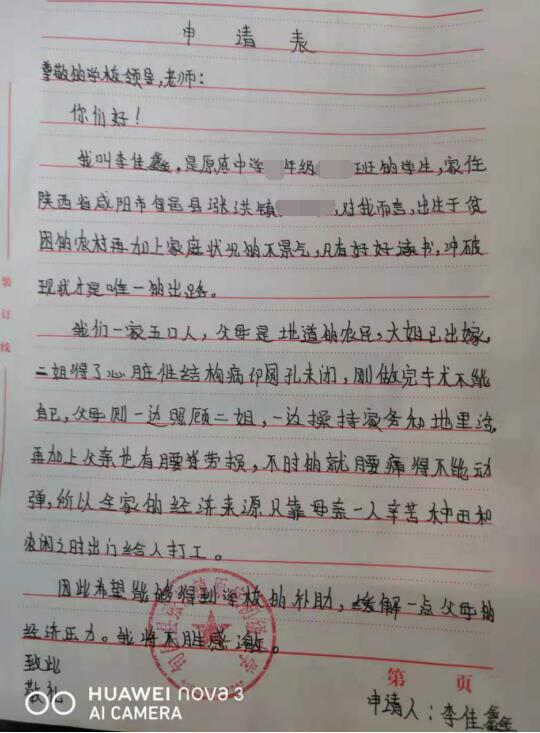 申请表
尊敬的学校领导,老师:
你们好!
我叫李佳鑫,是原底中学 年级 班的学生,家住
陕西省咸阳市旬邑县张洪镇 ,对我而言,出生于贫
困的农村再加上家庭状况的不景气,只有好好读书,冲破
现状才是唯一的出路。
我们一家五口人,父母是地道的农民,大姐已出嫁,
二姐得了心脏性结构病卵圆孔未闭,刚做完手术不能
自己,父母则一边照顾二姐,一边操持家务和地里活
再加上父亲也有腰脊劳损,不时的就腰痛得不能动
弹,所以全家的经济来源只靠母亲一人辛苦种田和
农闲之时出门给人打工。
因此希望能够得到学校的补助,缓解一点父母的
经济压力。我将不胜感激。
致此
敬礼
第 页
申请人:李佳鑫
装订线
旬邑县
HUAWEI nova 3
AI CAMERA